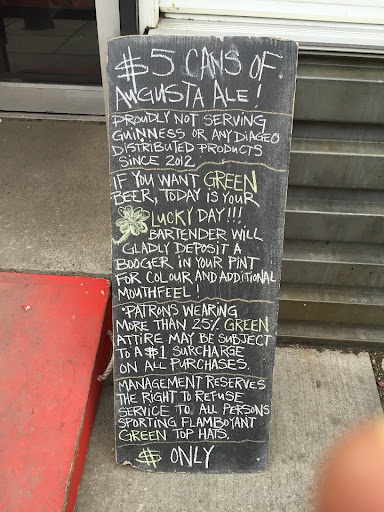 $5 CANS OF
AUGUSTA ALE!
PROUDLY NOT SERVING
GUINNESS OR ANY DIAGEO
DISTRIBUTED PRODUCTS
SINCE 2012
IF YOU WANT GREEN
BEER, TODAY IS YOUR
LUCKY DAY!!!
BARTENDER WILL
GLADLY DEPOSIT A
BOOGER IN YOUR PINT
FOR COLOUR AND ADDITIONAL
MOUTHFEEL!
•PATRONS WEARING
MORE THAN 25% GREEN
ATTIRE MAY BE SUBJECT
TO A $1 SURCHARGE
ON ALL PURCHASES.
MANAGEMENT RESERVES
THE RIGHT TO REFUSE
SERVICE TO ALL PERSONS
SPORTING FLAMBOYANT
GREEN TOP HATS.
$ ONLY